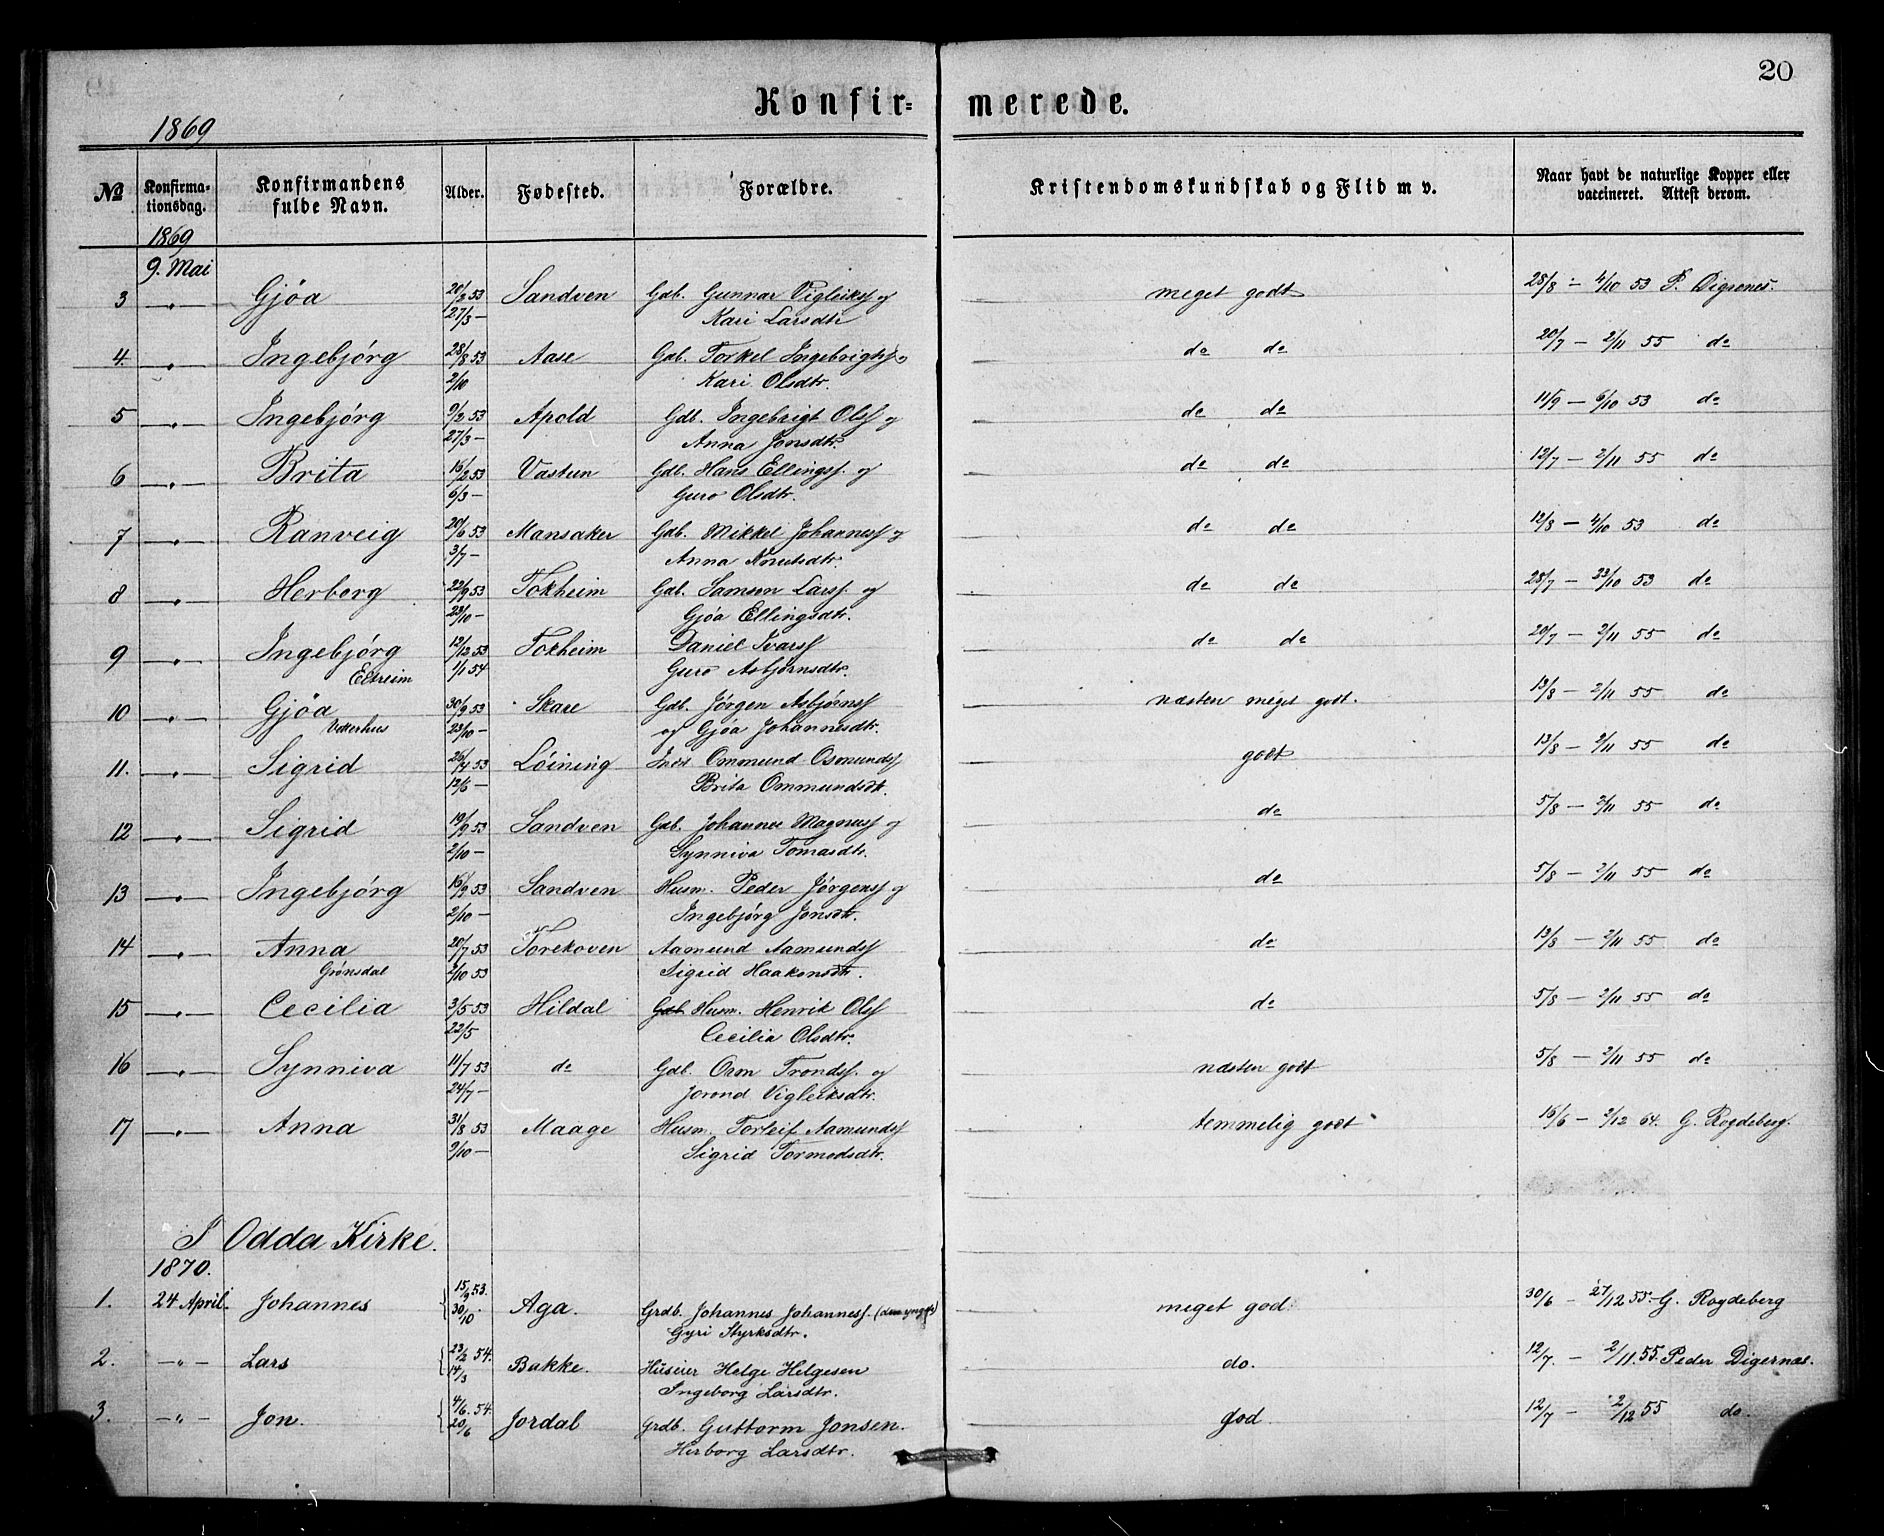 20
Konfir-merede.
1869
No Konfirmationsdag. Konfirmandens fulde Navn. Alder. Fødested. Forældre. Kristendomskundskab og Flid m v. Naar havt de naturlige Kopper eller vaccineret. Attest derom.
1869
9. Mai
3 —"— Gjøa 20/2 53 Sandven Gdb. Gunnar Vigleikss og meget godt 28/8 – 4/10 53 P. Digernes.
27/3 — Kari Larsdtr
4. —"— Ingebjórg 28/8 53 Aase Gdb. Torkel Ingebrigtss og do do 20/7 – 2/11 55 do
2/10 Kari Olsdtr.
5 —"— Ingebjórg 9/2 53 Apold Gdb. Ingebrigt Olss og do do 11/9 – 6/10 53 do
27/3 — Anna Jonsdtr.
6 —"— Brita 16/2 53 Vastun Gdb. Hans Ellingss. og do do 12/7 – 2/11 55 do
6/3 — Guro Olsdtr.
7 —"— Ranveig 20/6 53 Mansaker Gdb. Mikkel Johanness og do do 12/8 – 4/10 53 do
3/7 — Anna Knutsdtr.
8 —"— Herborg 22/9 53 Tokheim Gdb. Samson Larss. og do do 28/7 – 23/10 53 do
23/10 — Gjøa Ellingsdtr.
9 —"— Ingebjórg 12/12 53 Tokheim Daniel Ivarss do do 20/7 – 2/11 55 do
Eitreim 1/1 54 Guro Asbjørnsdtr.
10 —"— Gjøa 30/9 53 Skare Gdb. Jørgen Asbjørnss næsten meget godt. 13/8 – 2/11 55 do
Vetterhus 23/10 — og Gjøa Johannesdtr.
11. —"— Sigrid 26/4 53 Lóining Ommund Osmundss godt 13/8 – 2/11 55 do
12/6 — Brita Ommundsdt.
12 —"— Sigrid 19/9 53 Sandven Gdb. Johannes Magness og do 5/8 – 2/11 55 do
2/10 — Synniva Tomasdtr.
13 —"— Ingebjórg 16/9 53 Sandven Husm. Peder Jórgenss og do 5/8 – 2/11 55 do
2/10 — Ingebjórg Jonsdtr.
14 —"— Anna 20/7 53 Torekoven Aamund Aamundss do 13/8 – 2/11 55 do
Grónsdal 2/10 53 Sigrid Haakonsdtr.
15 —"— Cecilia 3/5 53 Hildal Gdb. Husm. Henrik Olss do 5/8 – 2/11 55 do
22/5 Cecilia Olsdtr.
16 —"— Synniva 11/7 53 do Gdb. Orm Trondss. og næsten godt 5/8 – 2/11 55 do
24/7 — Jorond Vigleiksdtr.
17 —"— Anna 31/8 53 Maage Husm. Torleif Aamundss temmelig godt 16/6 – 2/12 64. G. Rogdeberg.
9/10 — Sigrid Tormodsdtr.
I Odda Kirke.
1870.
1. 24 April Johannes 15/9 53. Aga. Grdb. Johannes Johanness. (den yngste) meget god. 30/6 – 27/12 55. G. Rogdeberg
30/10 Gyri Styrksdtr.
2. —"— Lars 23/2 54. Bakke. Húseier Helge Helgesen do. 12/7. – 2/11. 55. Peder Digernæs.
14/3 Ingeborg Larsdtr.
3. —"— Jon 4/6. 54. Jordal Grdb. Guttorm Jonsen. god. 12/7 – 2/12 55 do.
20/6 Herborg Larsdtr.